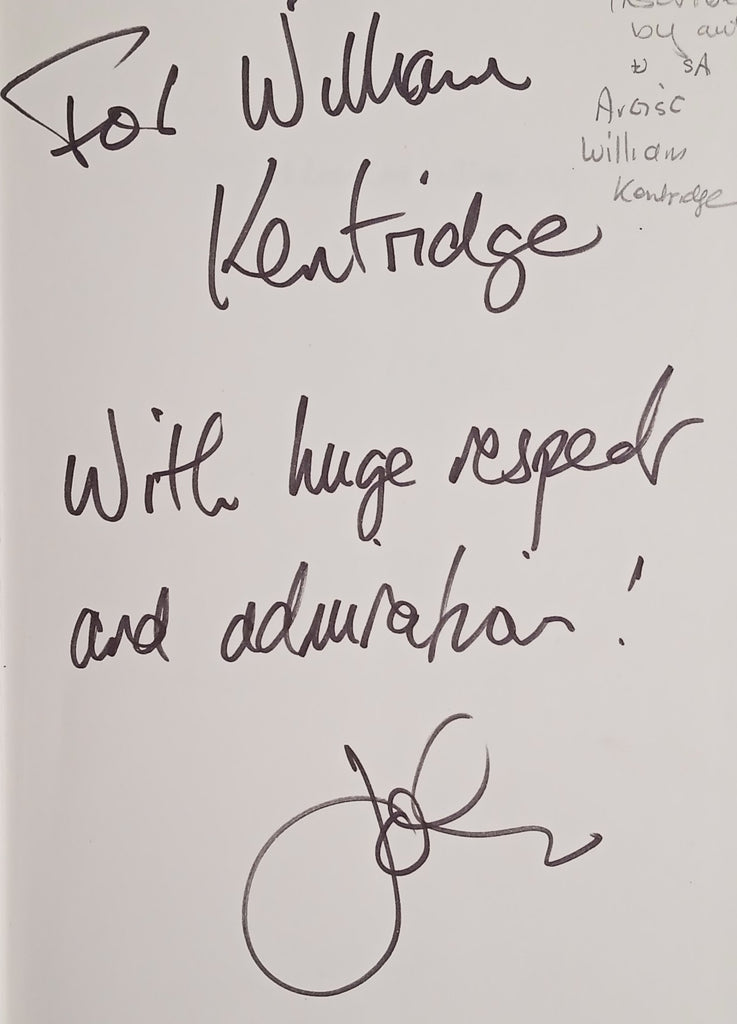 For William
Kentridge
With huge respect
and admiration!
John
by
to SA
Artist
William
Kentridge